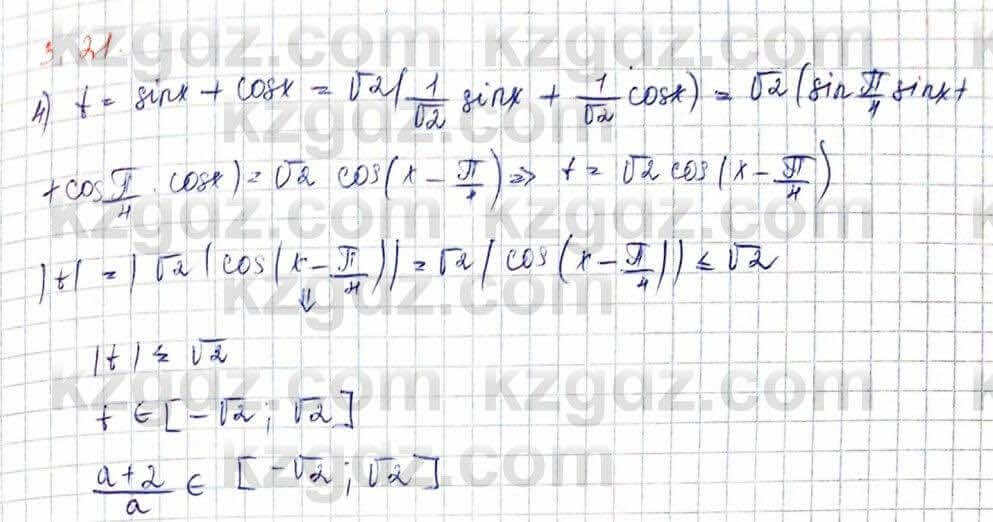 3.21.
4) t = sinx + cosx = √2(1/√2 sinx + 1/√2 cosx) = √2(sin π/4 sinx +
+ cos π/4 · cosx) = √2 cos(x − π/4) ⇒ t = √2 cos(x − π/4)
|t| = |√2(cos(x − π/4))| = √2|cos(x − π/4)| ≤ √2
⇓
|t| ≤ √2
t ∈ [−√2; √2]
a+2/a ∈ [−√2; √2]
kzgdz.com kzgdz.com
kzgdz.com
kzgdz.com kzgdz.com
kzgdz.com
kzgdz.com kzgdz.com
kzgdz.com